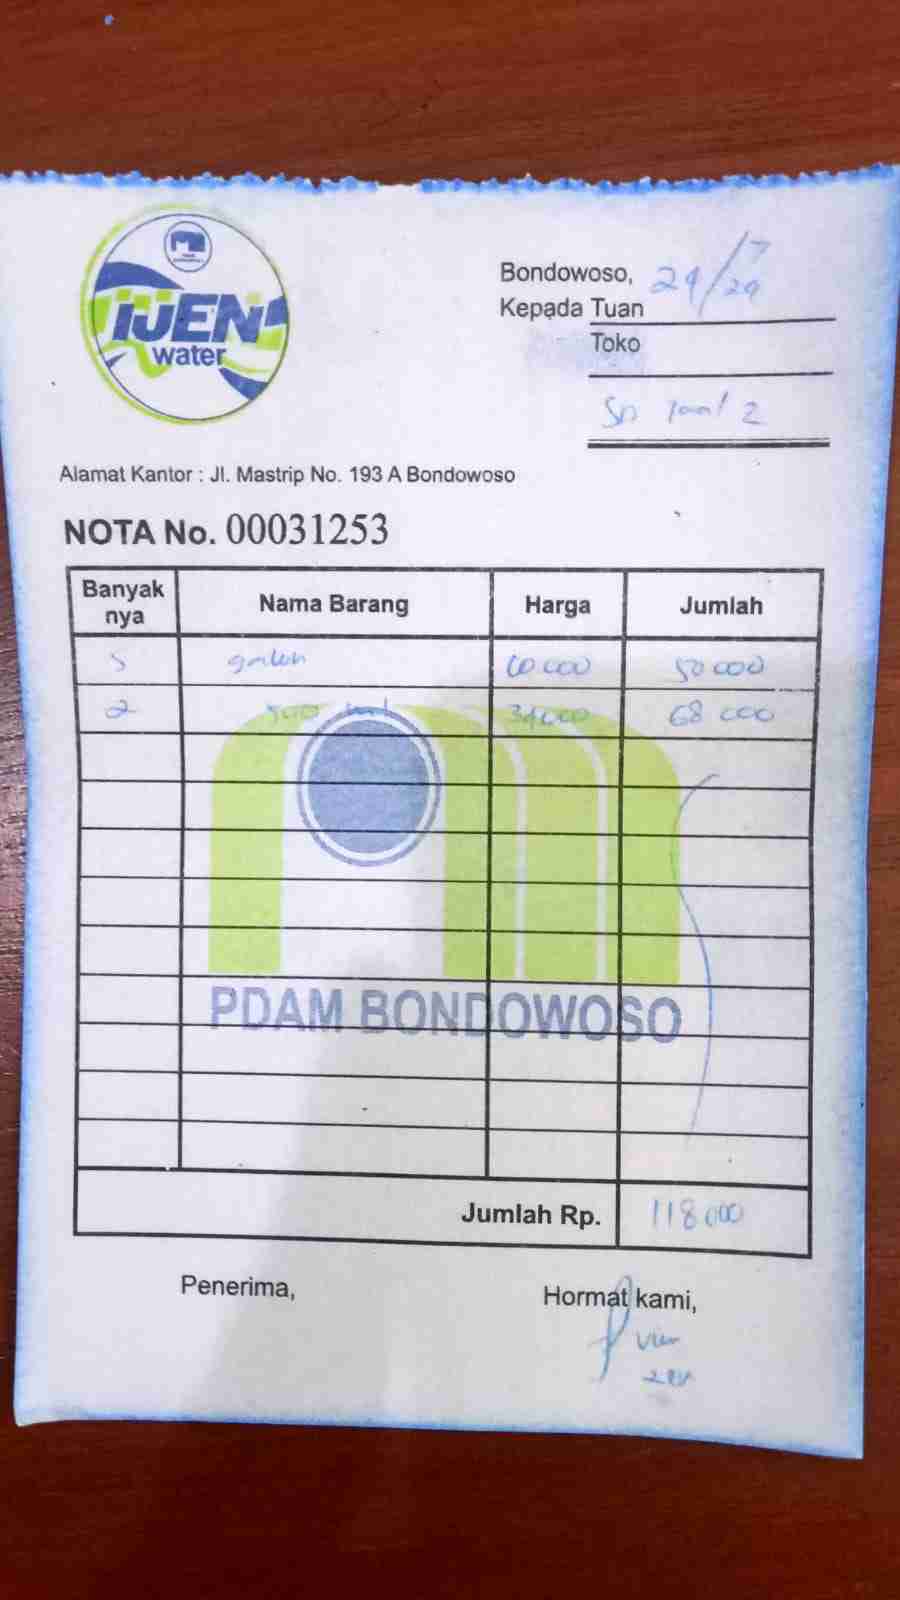 IJEN
water
Bondowoso, 29/7/24
Kepada Tuan
Toko
SD 2
Alamat Kantor : Jl. Mastrip No. 193 A Bondowoso
NOTA No. 00031253
Banyak nya Nama Barang Harga Jumlah
5 galon 10 000 50 000
2 500 ml 34000 68 000
PDAM BONDOWOSO
Jumlah Rp. 118 000
Penerima, Hormat kami,